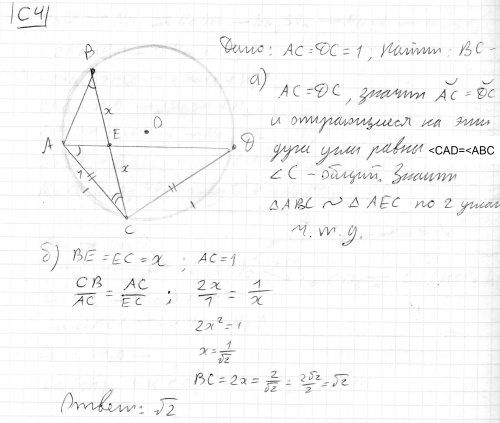 C4
Дано: AC = DC = 1; Найти: BC -
а) AC = DC, значит AC = DC
и опирающиеся на эти
дуги углы равны <CAD=<ABC
∠C - общий. Значит
△ABC ~ △AEC по 2 углам
ч.т.д.
B
x
O
A
E
D
x
1
1
C
б) BE = EC = x ; AC = 1
CB/AC = AC/EC ; 2x/1 = 1/x
2x² = 1
x = 1/√2
BC = 2x = 2/√2 = 2√2/2 = √2
Ответ: √2